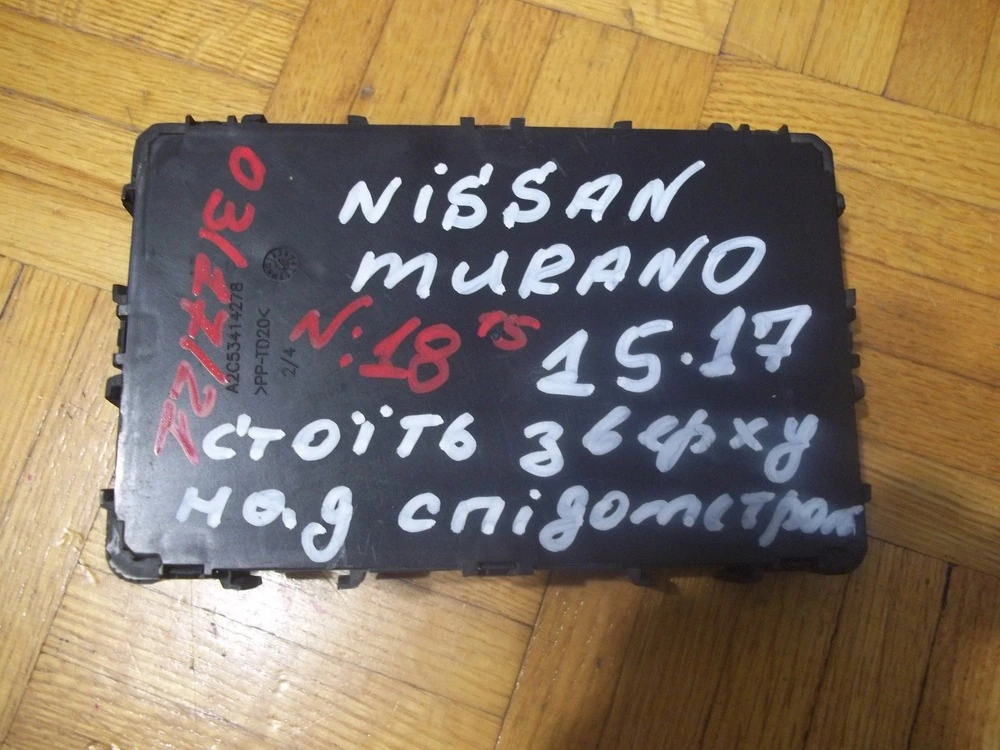 NiSSAN
MURANO
N:18 TS 15.17
стоїть зверху
над спідометром
A2C53414278
>PP-TD20<
2/4